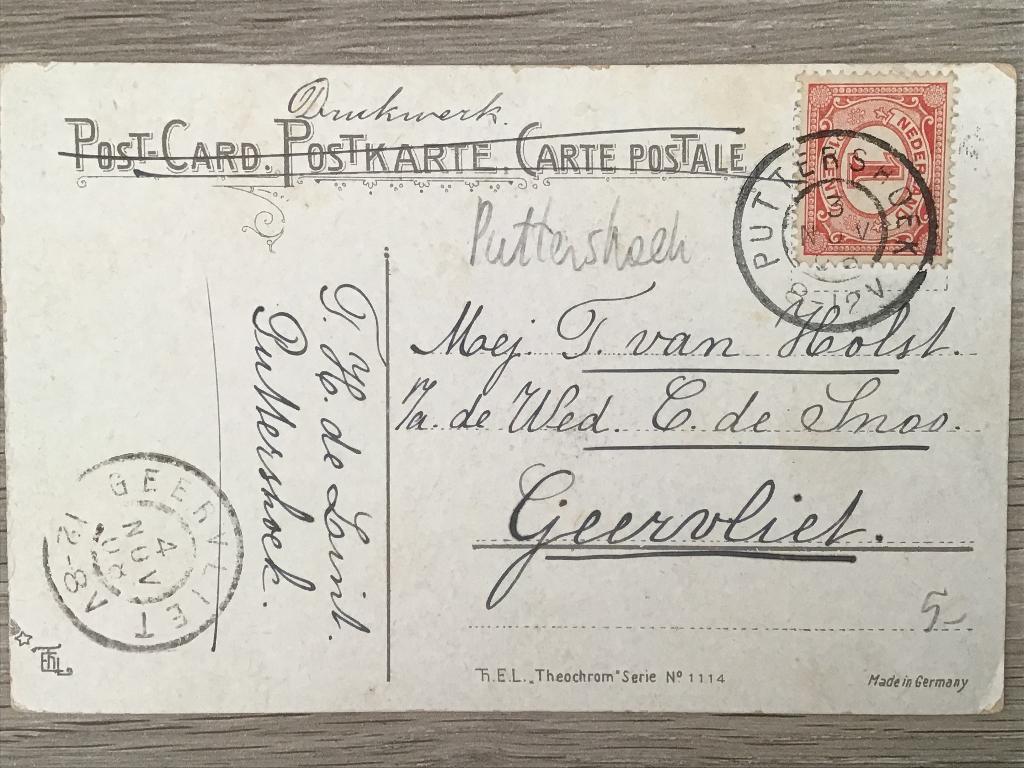 Drukwerk.
POST-CARD. POSTKARTE. CARTE POSTALE
NEDERLAND
1
CENT
PUTTERSHOEK
3
NOV
8-12V
Puttershoek
Mej. T. van Holst.
p/a. de Wed. C. de Snoo.
Geervliet.
5-
T. H. de Zanit.
Puttershoek.
GEERVLIET
4
NOV
08
12-8V
T.E.L. „Theochrom" Serie Nº 1114
Made in Germany